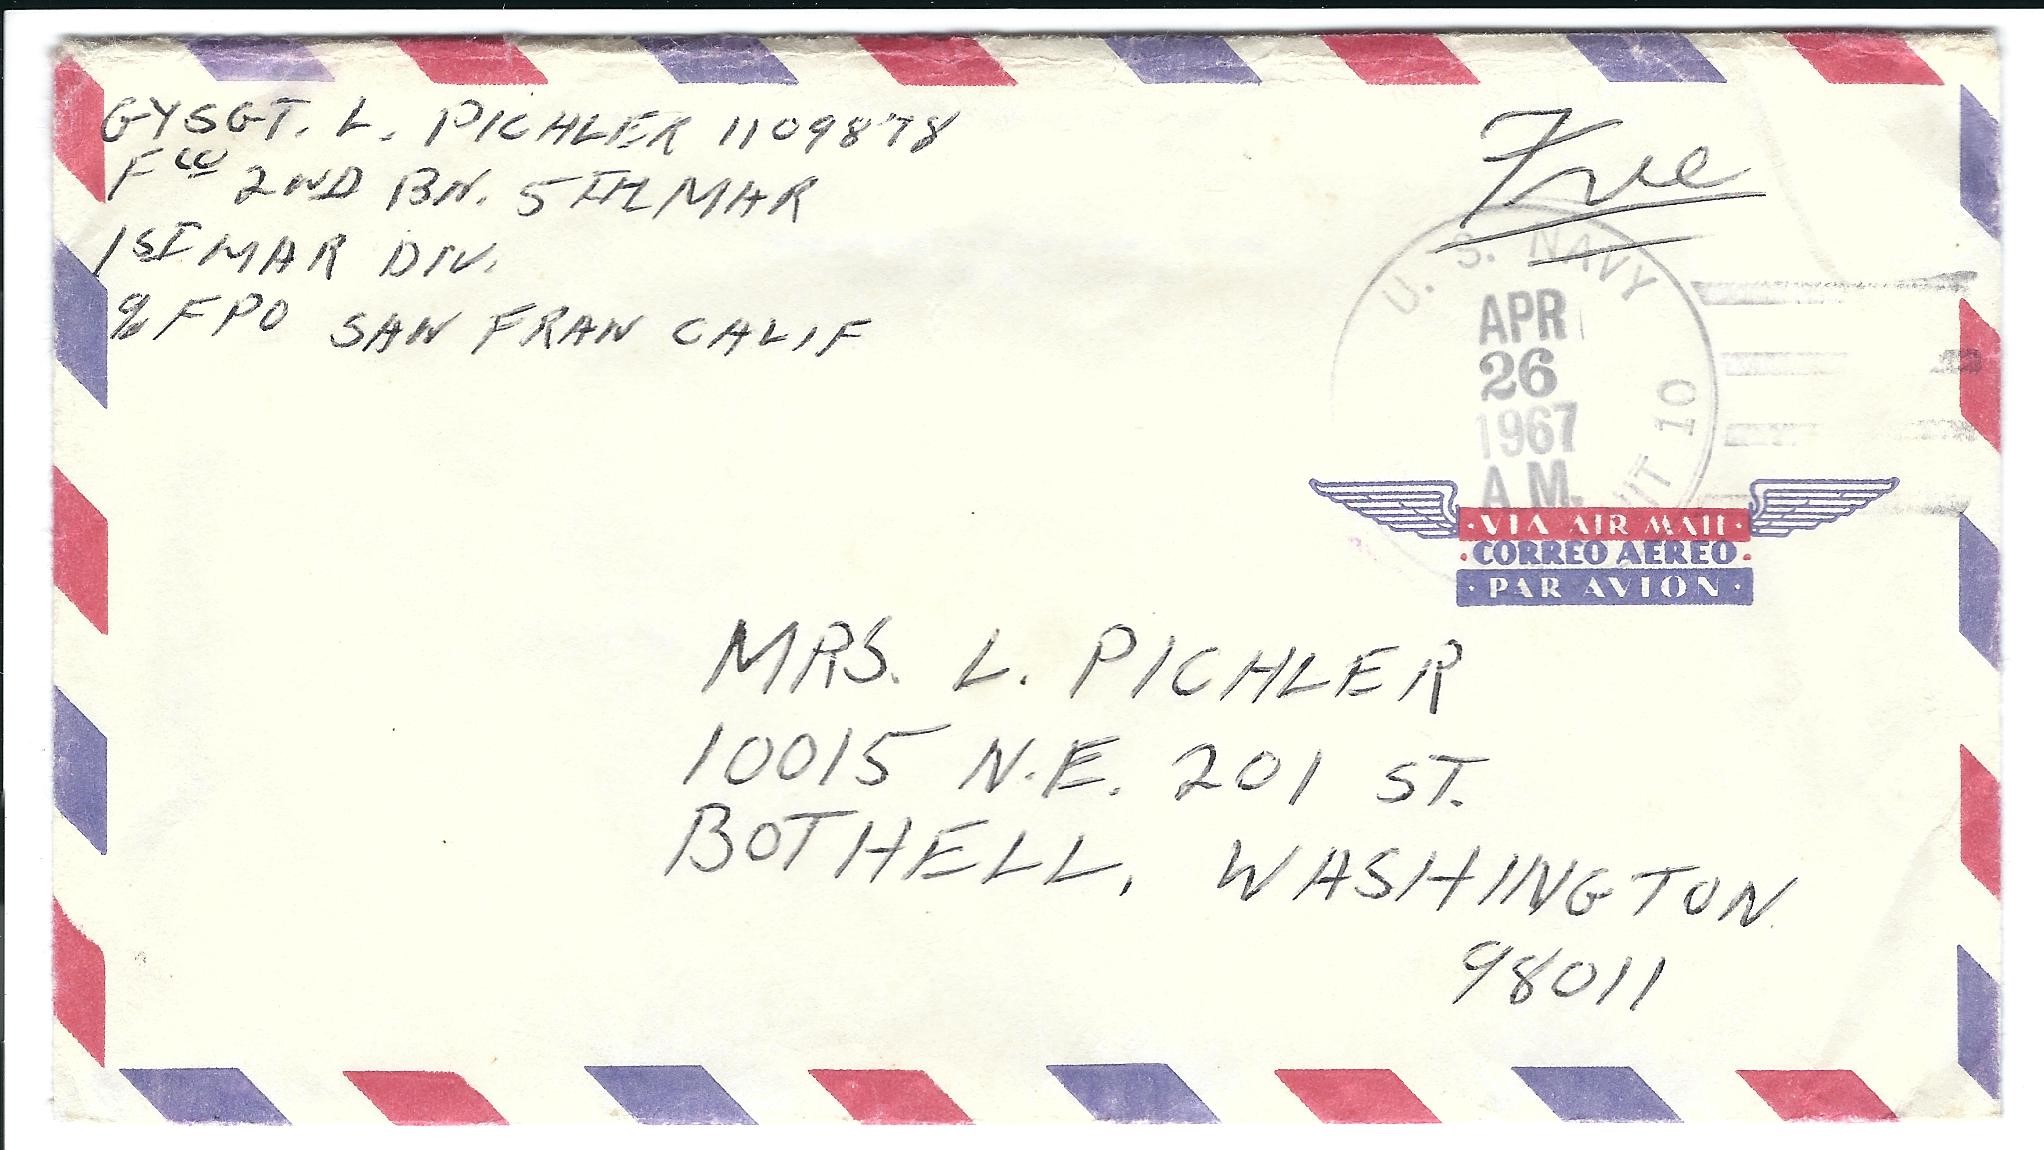 GYSGT. L. PICHLER 1109878
F CO 2ND BN. 5TH MAR
1ST MAR DIV.
% FPO SAN FRAN CALIF
Free
U. S. NAVY
APR
26
1967
A M.
10
VIA AIR MAIL
CORREO AEREO
PAR AVION
MRS. L. PICHLER
10015 N.E. 201 ST.
BOTHELL, WASHINGTON
98011